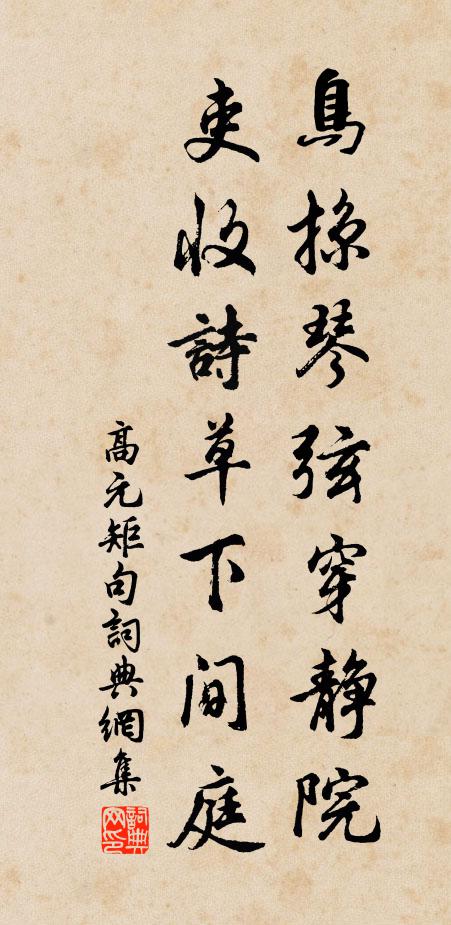 鳥掠琴弦穿靜院
吏收詩草下閒庭
高元矩句詞典網集
詞典网印